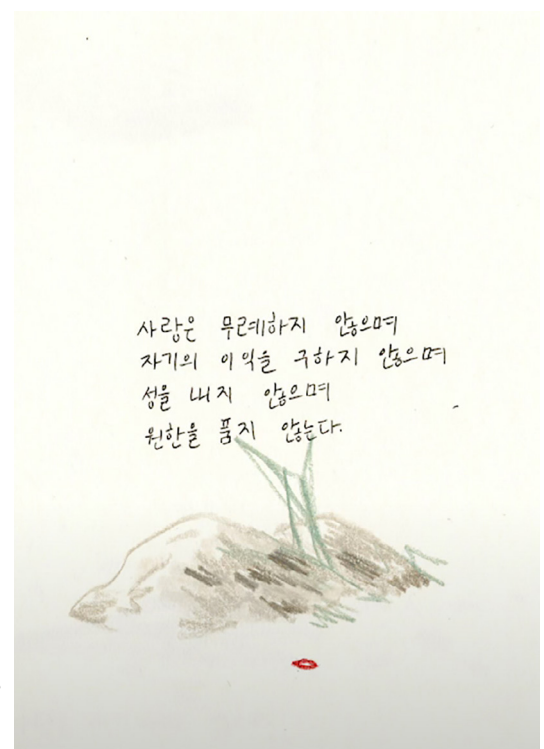 사랑은 무례하지 않으며
자기의 이익을 구하지 않으며
성을 내지 않으며
원한을 품지 않는다.